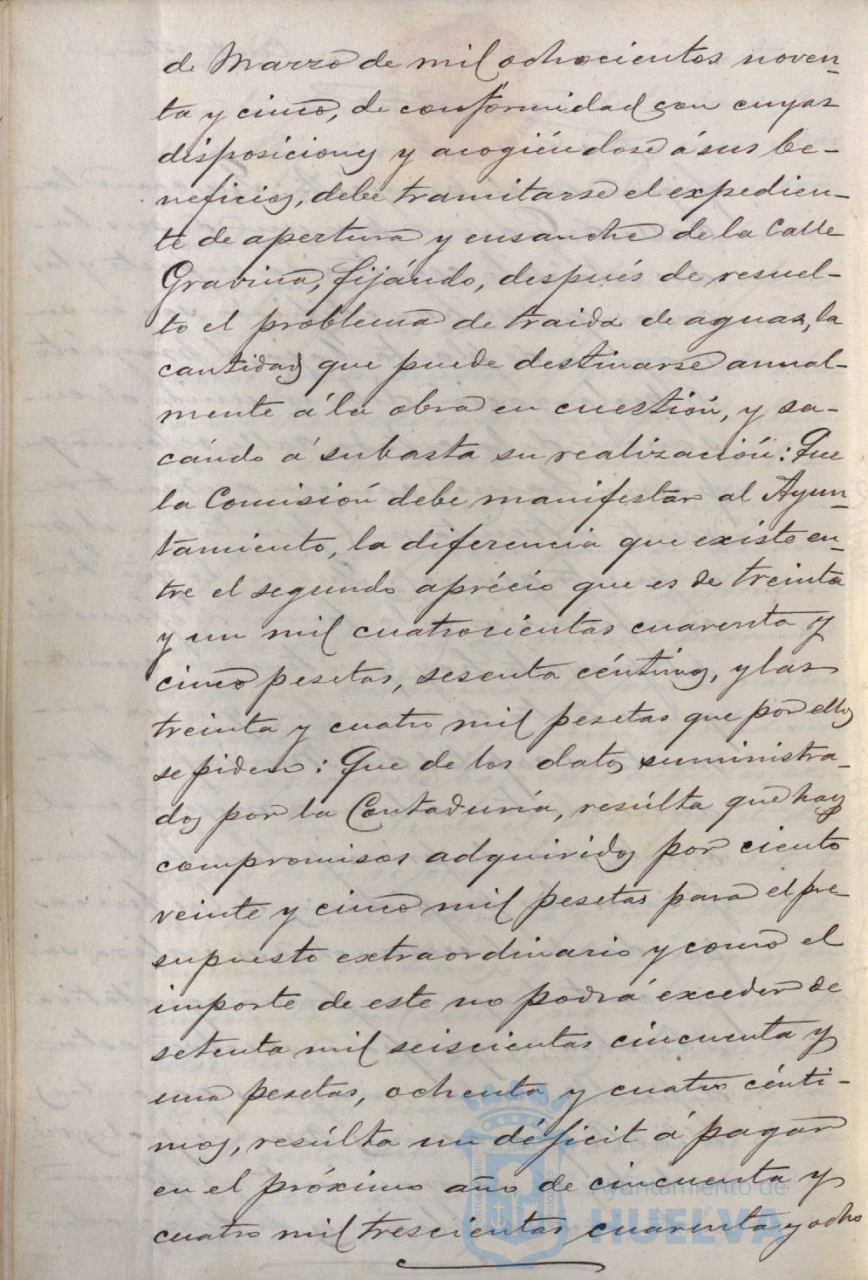 de Marzo de mil ochocientos noven-
ta y cinco, de conformidad con cuyas
disposiciones y acogiéndose á sus be-
neficios, debe tramitarse el expedien-
te de apertura y ensanche de la Calle
Gravina, fijándo, después de resuel-
to el problema de traida de aguas, la
cantidad que puede destinarse anual-
mente á la obra en cuestión, y sa-
cándo á subasta su realización: Que
la Comisión debe manifestar al Ayun-
tamiento, la diferencia que existe en-
tre el segundo aprécio que es de treinta
y un mil cuatrocientas cuarenta y
cinco pesetas, sesenta céntimos, y las
treinta y cuatro mil pesetas que por ellos
se piden: Que de los datos suministra-
dos por la Contaduría, resúlta que hay
compromisos adquiridos por ciento
veinte y cinco mil pesetas para el pre
supuesto extraordinario y como el
importe de este no podrá exceder de
setenta mil seiscientas cincuenta y
una pesetas, ochenta y cuatro cénti-
mos, resúlta un déficit á pagar
en el próximo año de cincuenta y
cuatro mil trescientas cuarenta y ocho
Ayuntamiento de
HUELVA